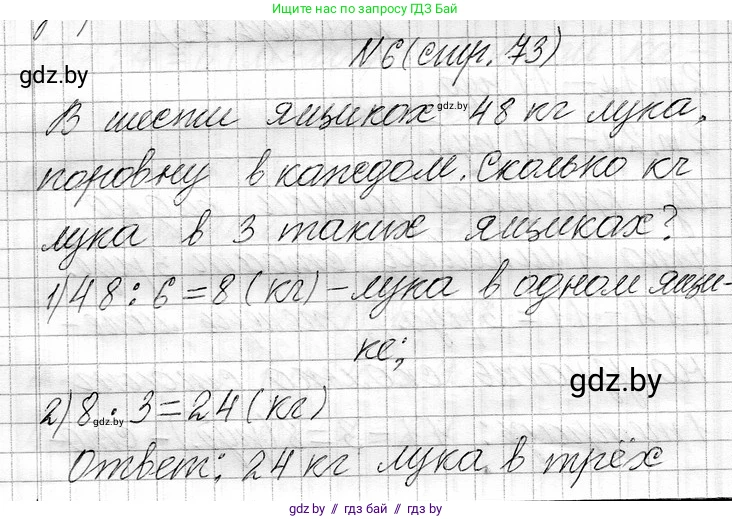 Ищите нас по запросу ГДЗ Бай
N6 (стр. 73)
gdz.by
В шести ящиках gdz.by 48 кг лука,
поровну в каждом. Сколько кг
лука в 3 таких ящиках?
1) 48 : 6 = 8 (кг) - лука в одном ящи-
ке;
gdz.by
2) 8 · 3 = 24 (кг)
gdz.by
Ответ: 24 кг лука в трёх
gdz.by // гдз бай // gdz.by